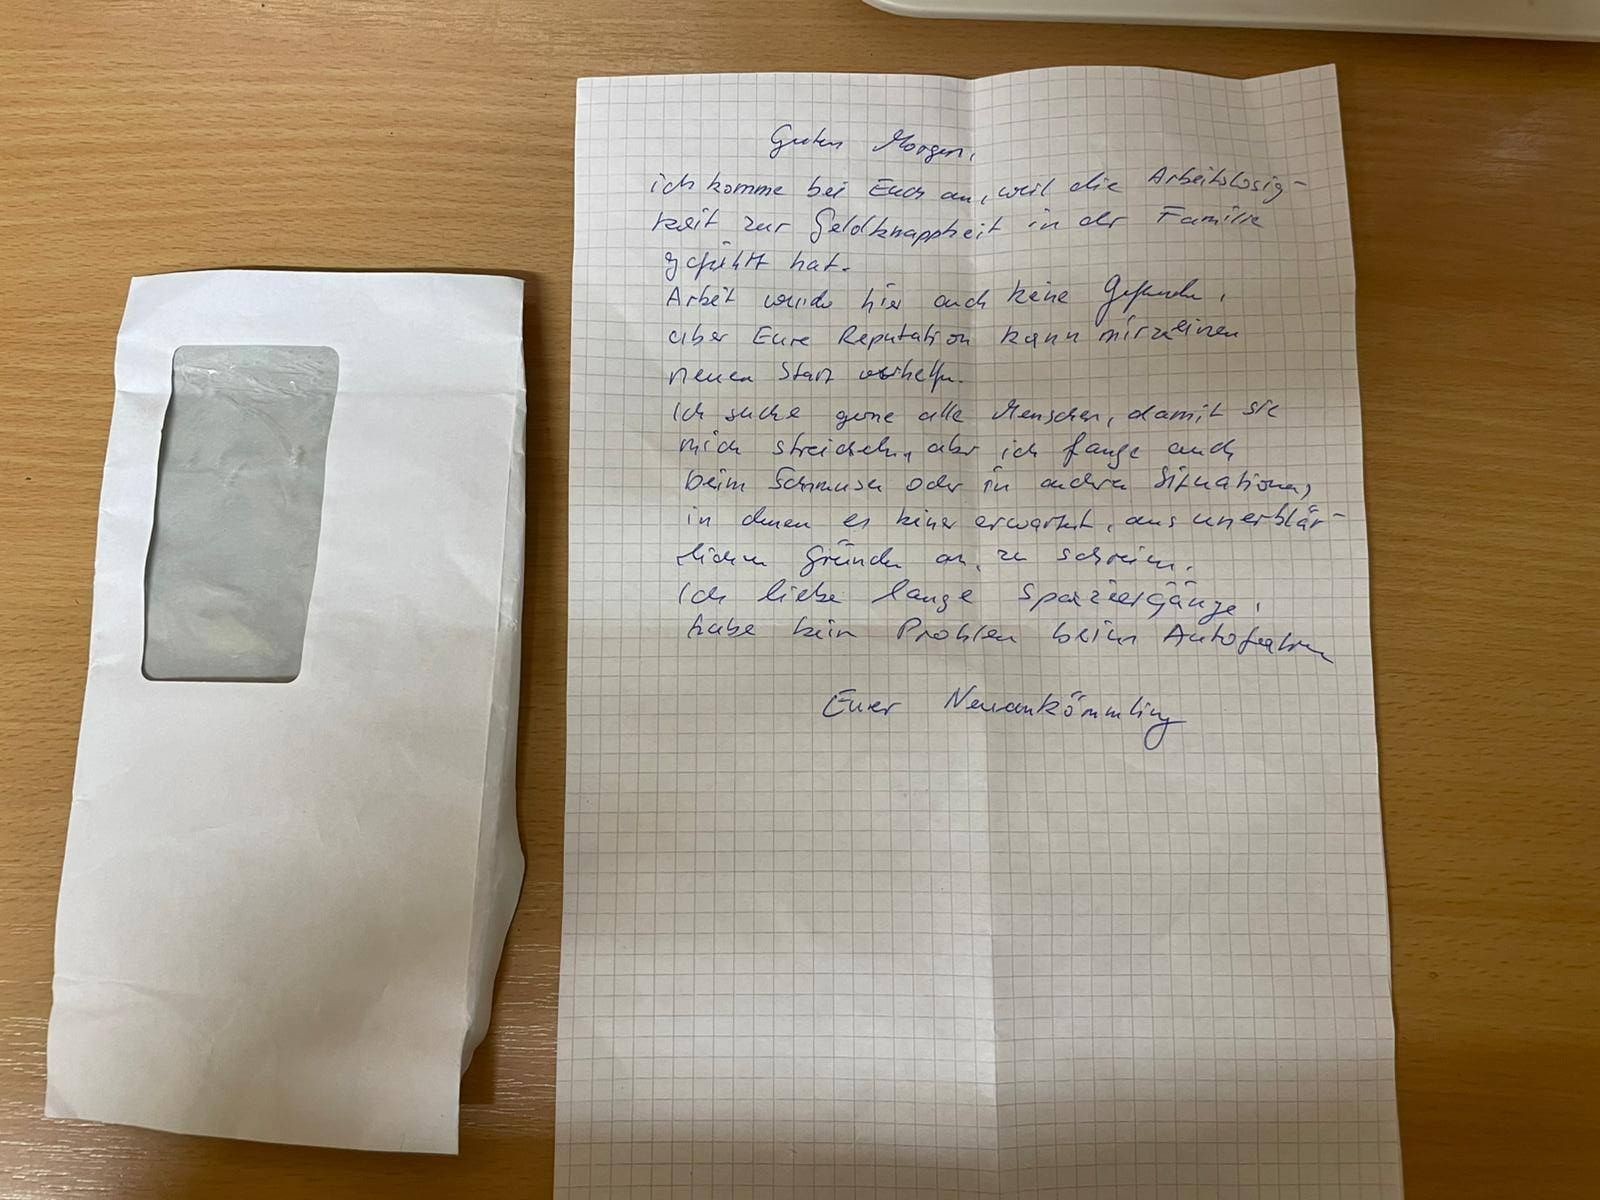 Guten Morgen,
ich komme bei Euch an, weil die Arbeitslosig-
keit zur Geldknappheit in der Familie
geführt hat.
Arbeit wurde hier auch keine Gefunden,
aber Eure Reputation kann mir einen
neuen Start verhelfen.
Ich suche gerne alle Menschen, damit sie
mich streicheln, aber ich fange auch
beim Schmusen oder in anderen Situationen,
in denen es keiner erwartet, aus unerklär-
lichen Gründen an, zu schreien.
Ich liebe lange Spaziergänge,
habe kein Problem beim Autofahren
Euer Neuankömmling